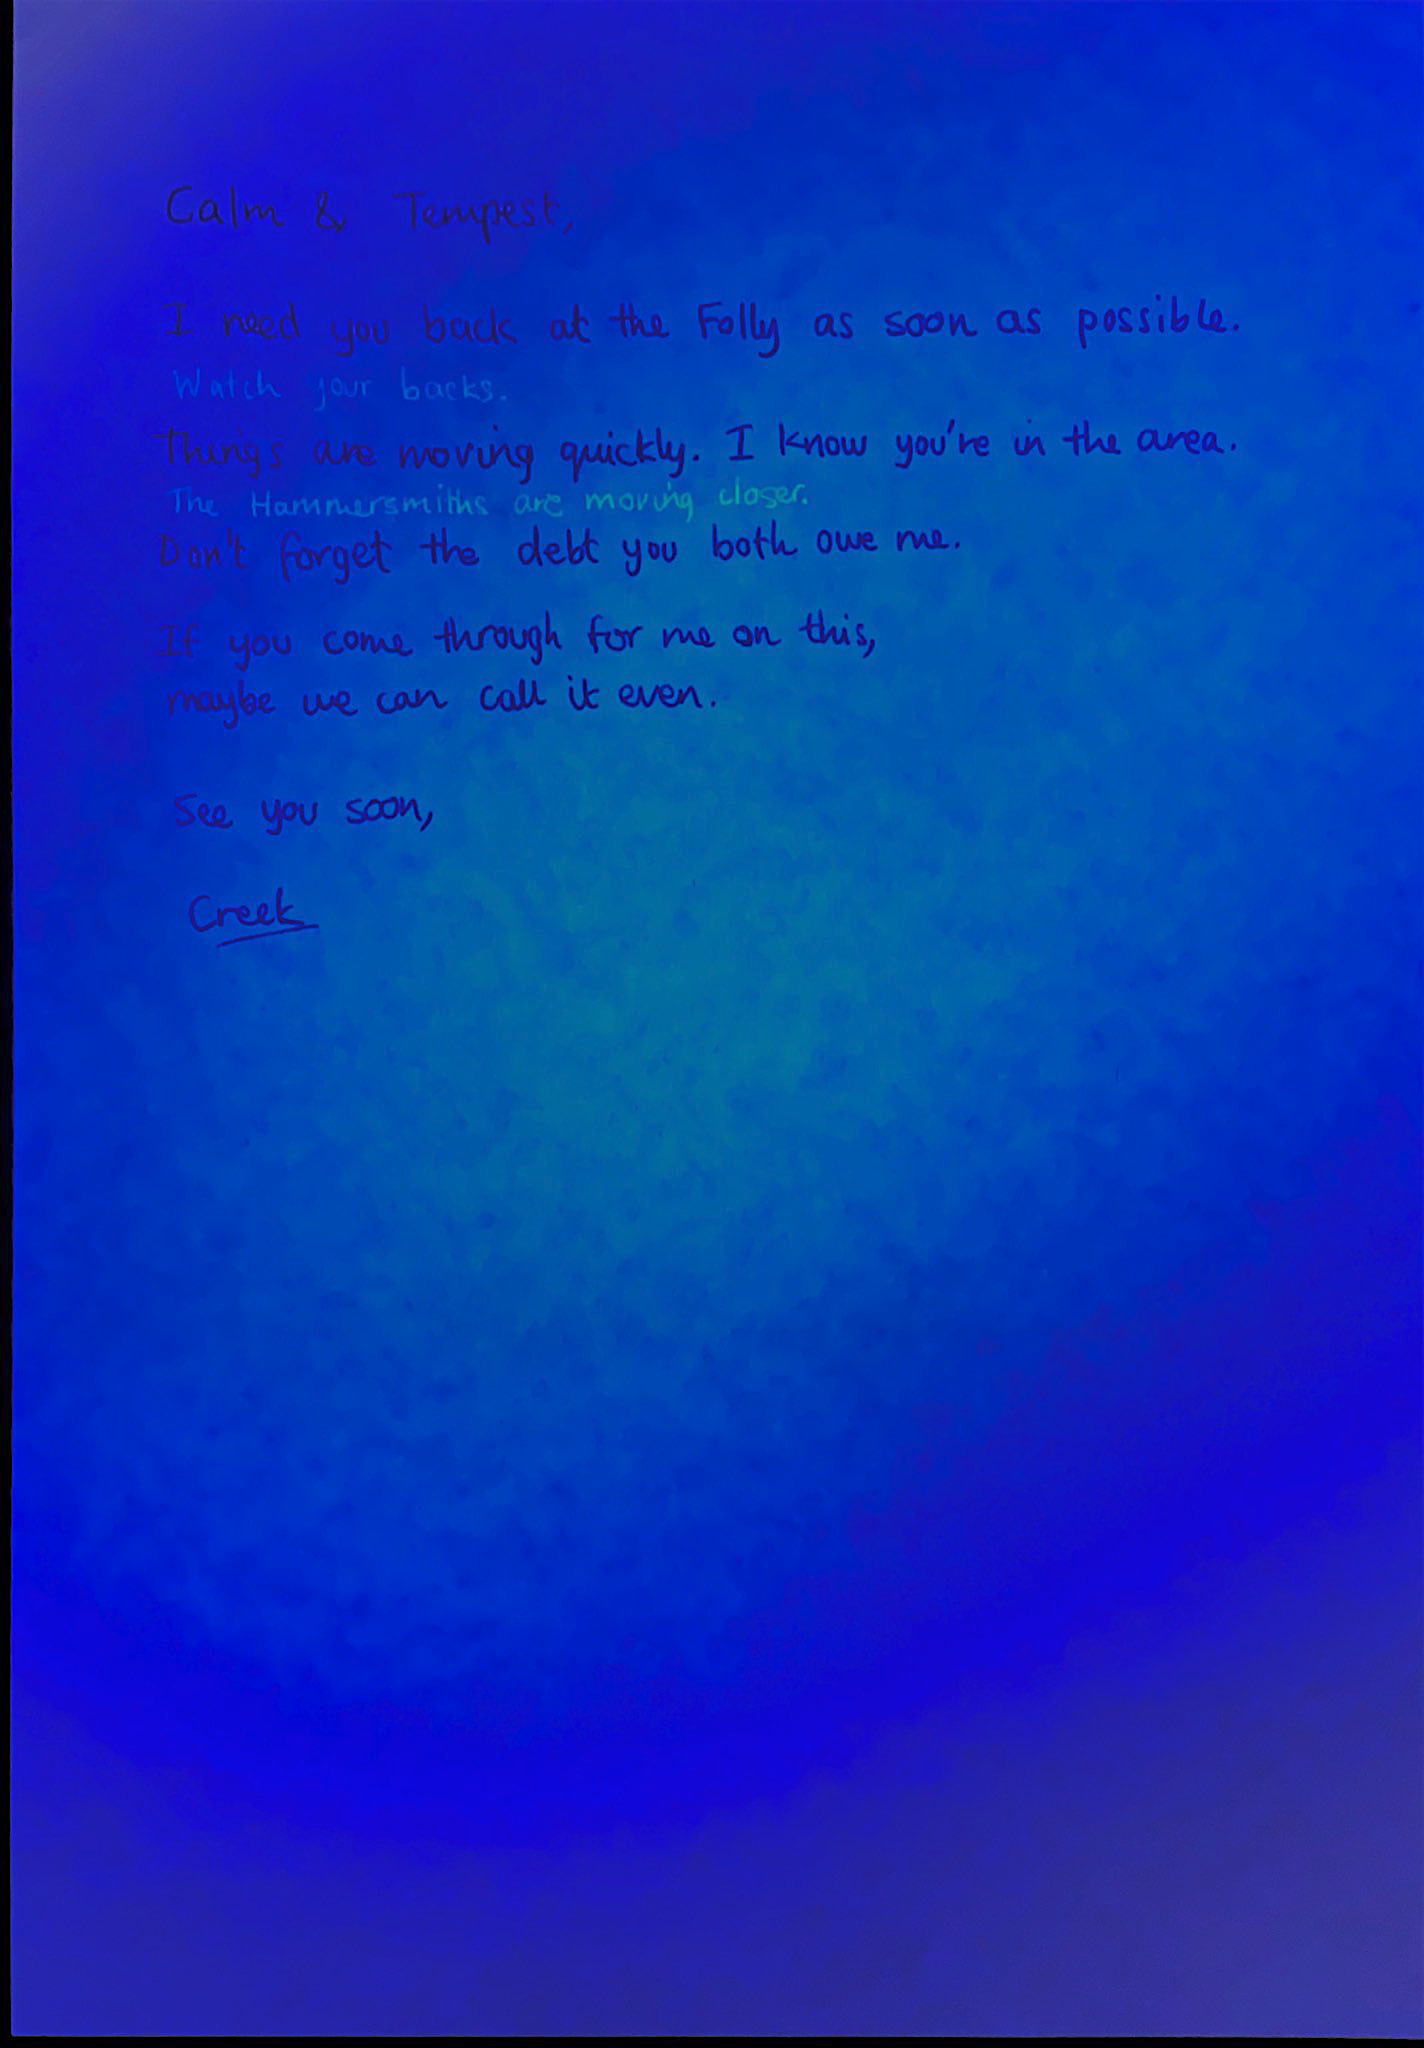 Calm & Tempest,
I need you back at the Folly as soon as possible.
Watch your backs.
Things are moving quickly. I know you're in the area.
The Hammersmiths are moving closer.
Don't forget the debt you both owe me.
If you come through for me on this,
maybe we can call it even.
See you soon,
Creek